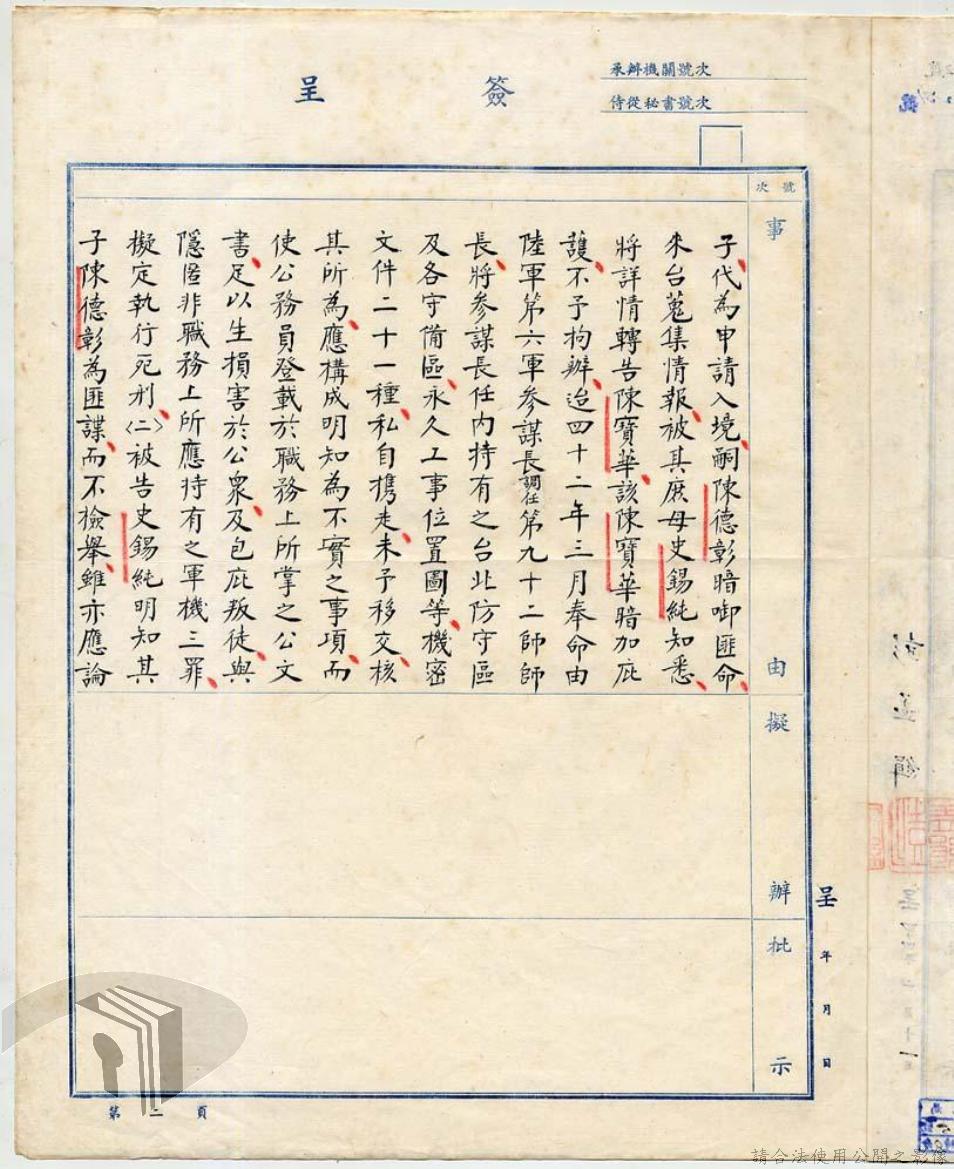 承辦機關號次
侍從秘書號次
簽呈
號次
事由
擬辦
批示
子、代為申請入境、嗣陳德彰暗啣匪命、
來台蒐集情報、被其庶母史錫純知悉、
將詳情轉告陳寶華、該陳寶華暗加庇
護、不予拘辦、迨四十二年三月奉命由
陸軍第六軍參謀長調任第九十二師師
長、將參謀長任內持有之台北防守區
及各守備區、永久工事位置圖等、機密
文件二十一種、私自攜走、未予移交、核
其所為、應構成明知為不實之事項、而
使公務員登載於職務上所掌之公文
書、足以生損害於公眾、及包庇叛徒、與
隱匿非職務上所應持有之軍機三罪、
擬定執行死刑、〈二〉被告史錫純明知其
子陳德彰為匪諜、而不檢舉、雖亦應論
呈 年 月 日
第二頁
請合法使用公開之影像